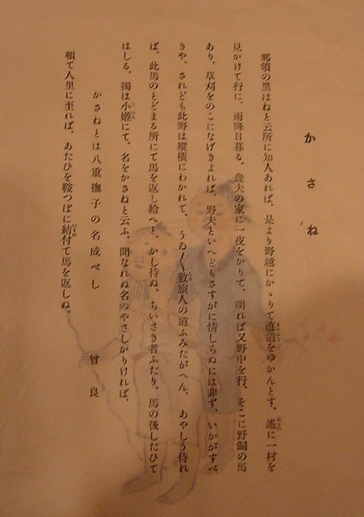 かさね
那須の黒ばねと云所に知人あれば、是より野越にかゝりて直道をゆかんとす。遙に一村を
見かけて行に、雨降日暮る。農夫の家に一夜をかりて、明れば又野中を行。そこに野飼の馬
あり。草刈をのこになげきよれば、野夫といへどもさすがに情しらぬには非ず。いかゞすべ
きや、されども此野は縱横にわかれて、うゐ〳〵敷旅人の道ふみたがへん、あやしう侍れ
ば、此馬のとゞまる所にて馬を返し給へと、かし侍ぬ。ちいさき者ふたり、馬の後したひて
はしる。獨は小姫にて、名をかさねと云ふ。聞なれぬ名のやさしかりければ、
かさねとは八重撫子の名成べし　曾良
頓て人里に至れば、あたひを鞍つぼに結付て馬を返しぬ。